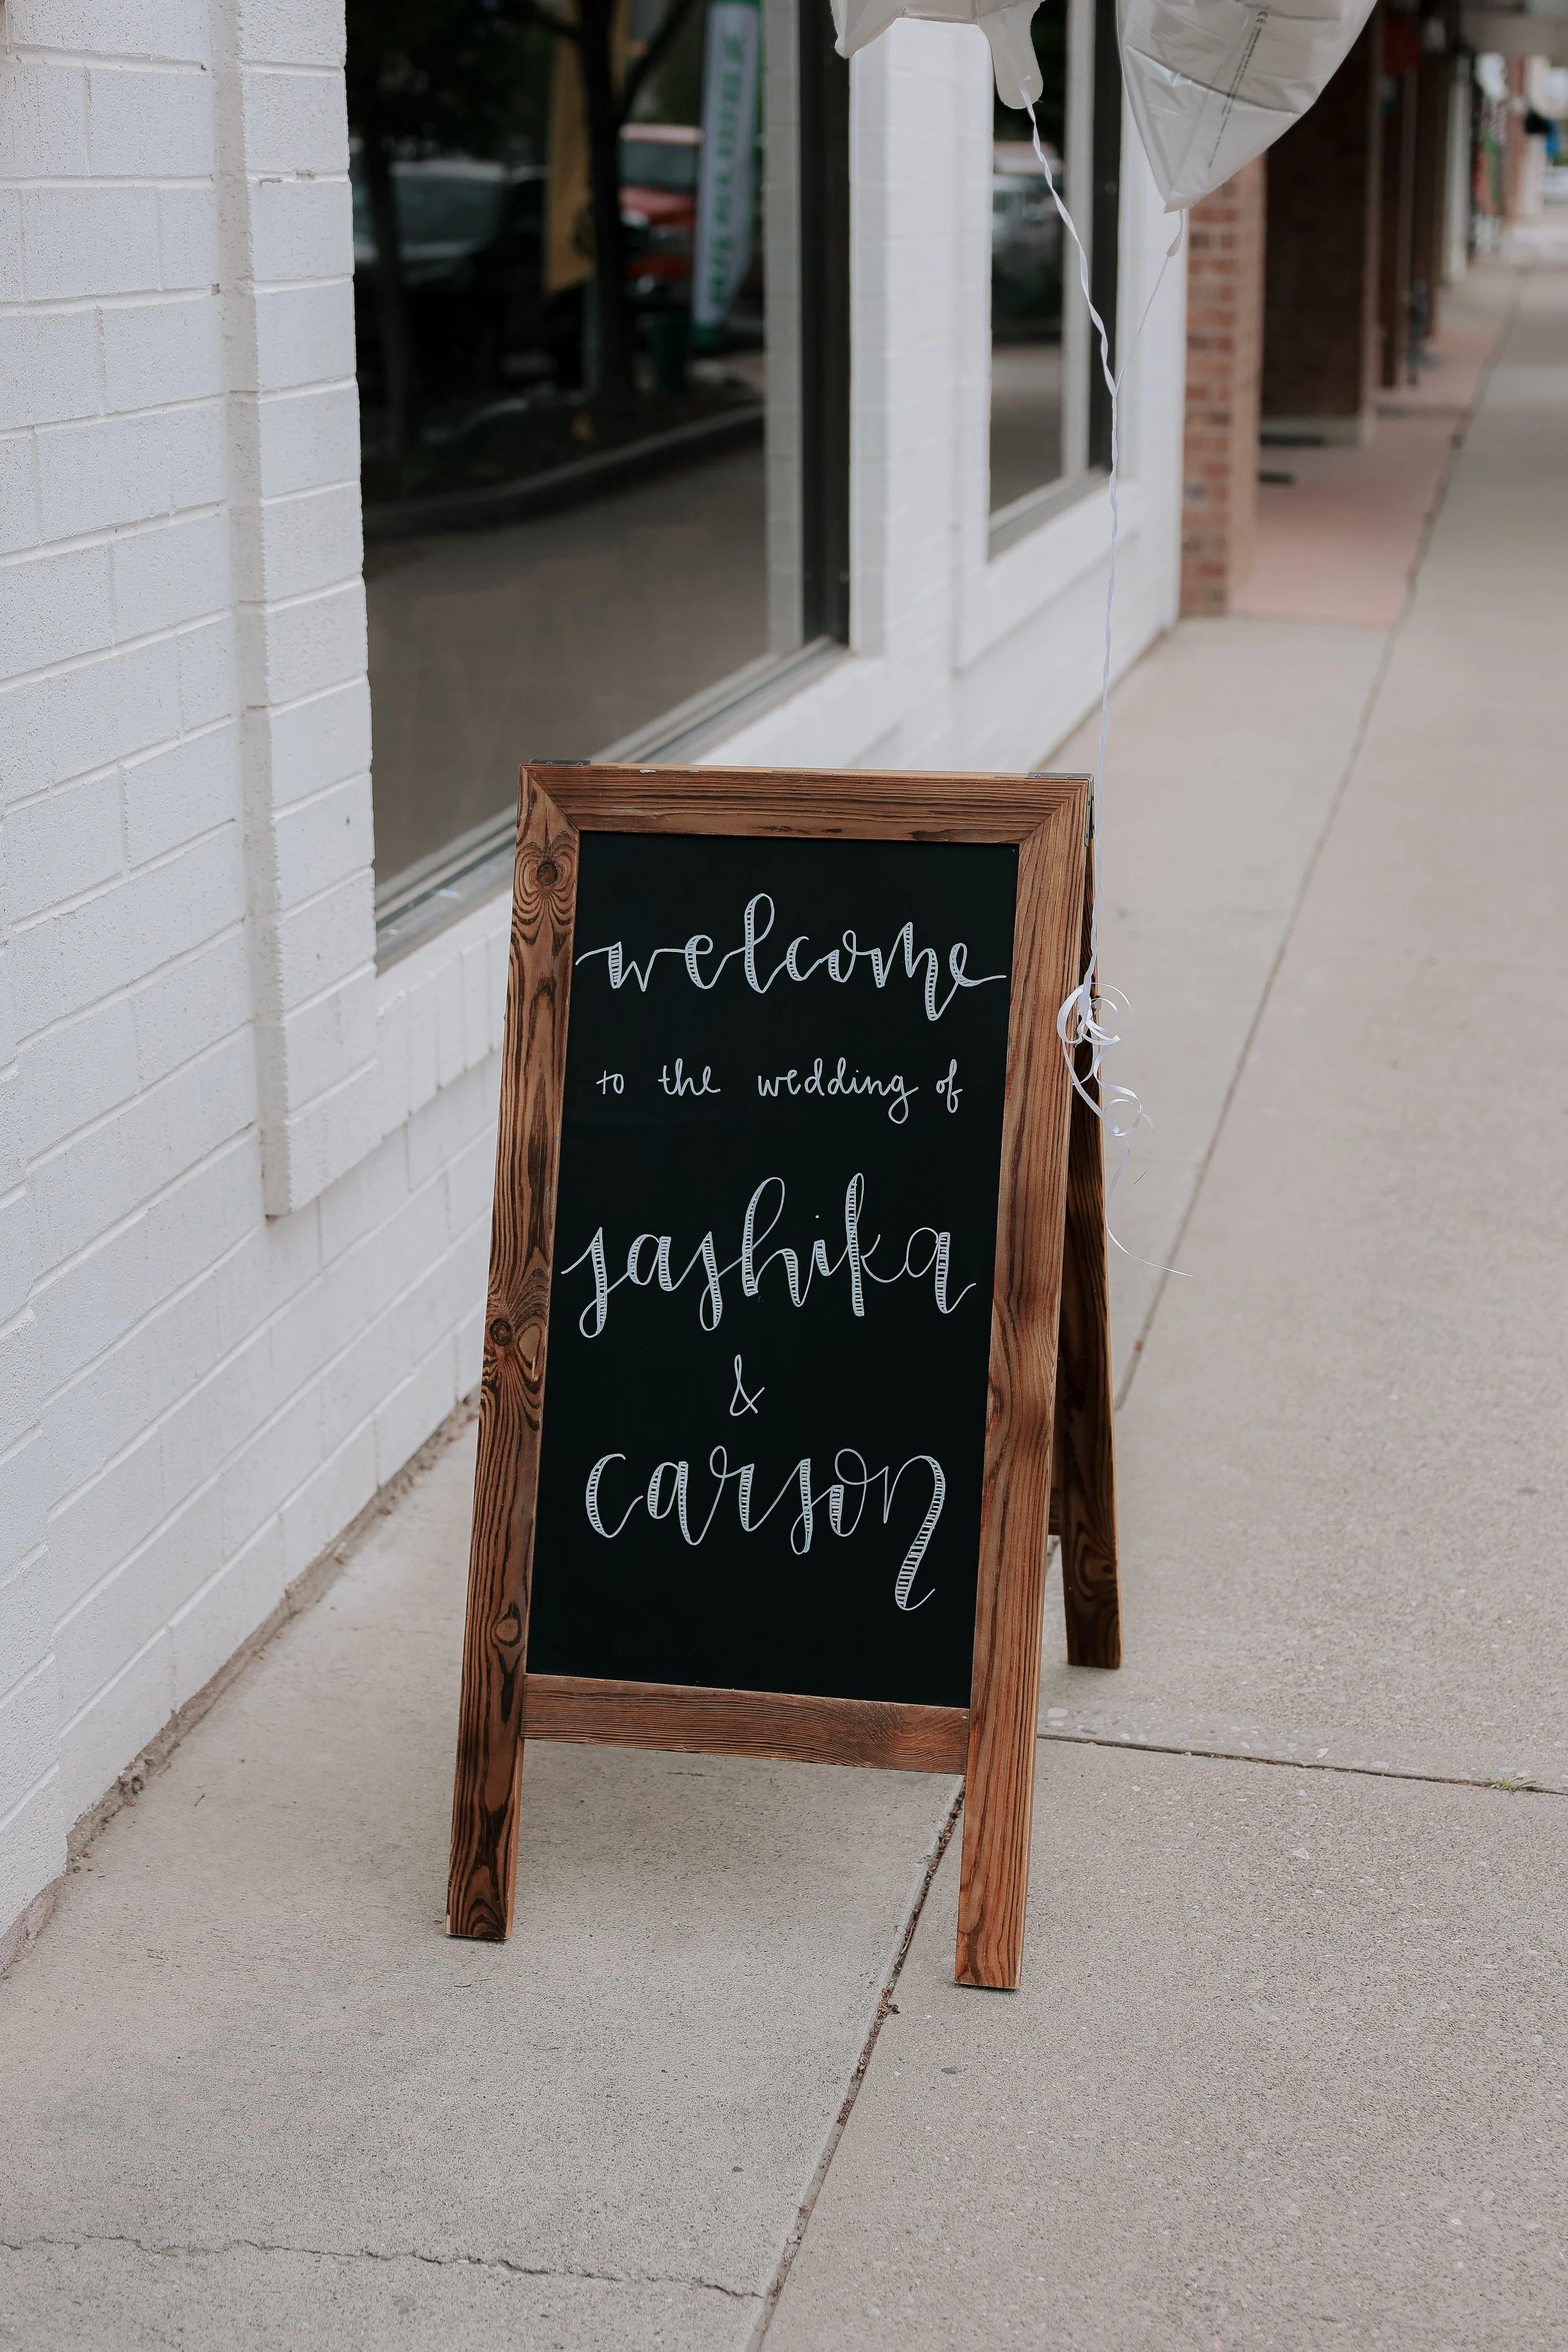 welcome
to the wedding of
sashika
&
carson